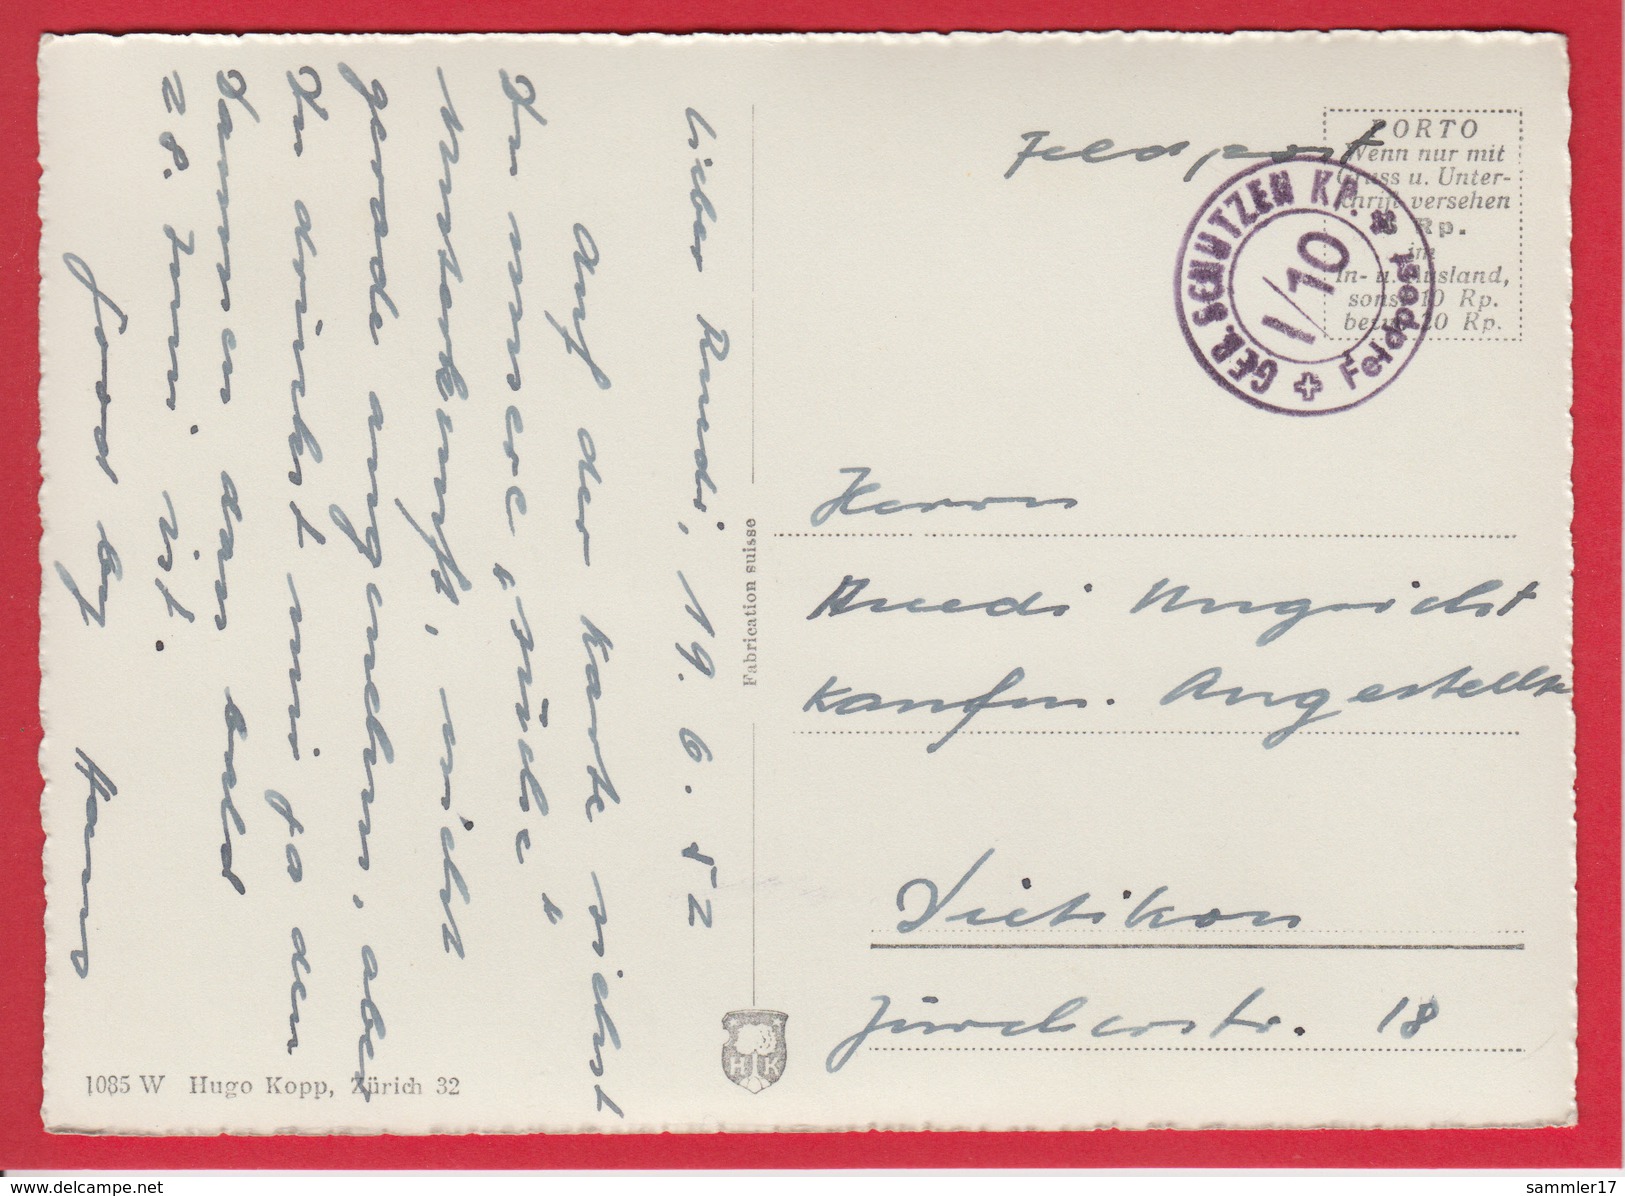 Lieber Ruedi, 19. 6. 52
Auf der Karte siehst
Du unsere „süsse“
Unterkunft, nicht
gerade angenehm, aber
Du drückst mir ja den
Daumen dass bald
28. Juni ist.
Good by Hans
Feldpost
PORTO
Wenn nur mit
Gruss u. Unter-
schrift versehen
Rp.
im
In- u. Ausland,
sonst 10 Rp.
bezw. 20 Rp.
GEB. SCHÜTZEN KP.
I/10
Feldpost
Fabrication suisse
Herrn
Ruedi Ungricht
Kaufm. Angestellter
Dietikon
Zürcherstr. 18
HK
1085 W Hugo Kopp, Zürich 32
delcampe.net
sammler17